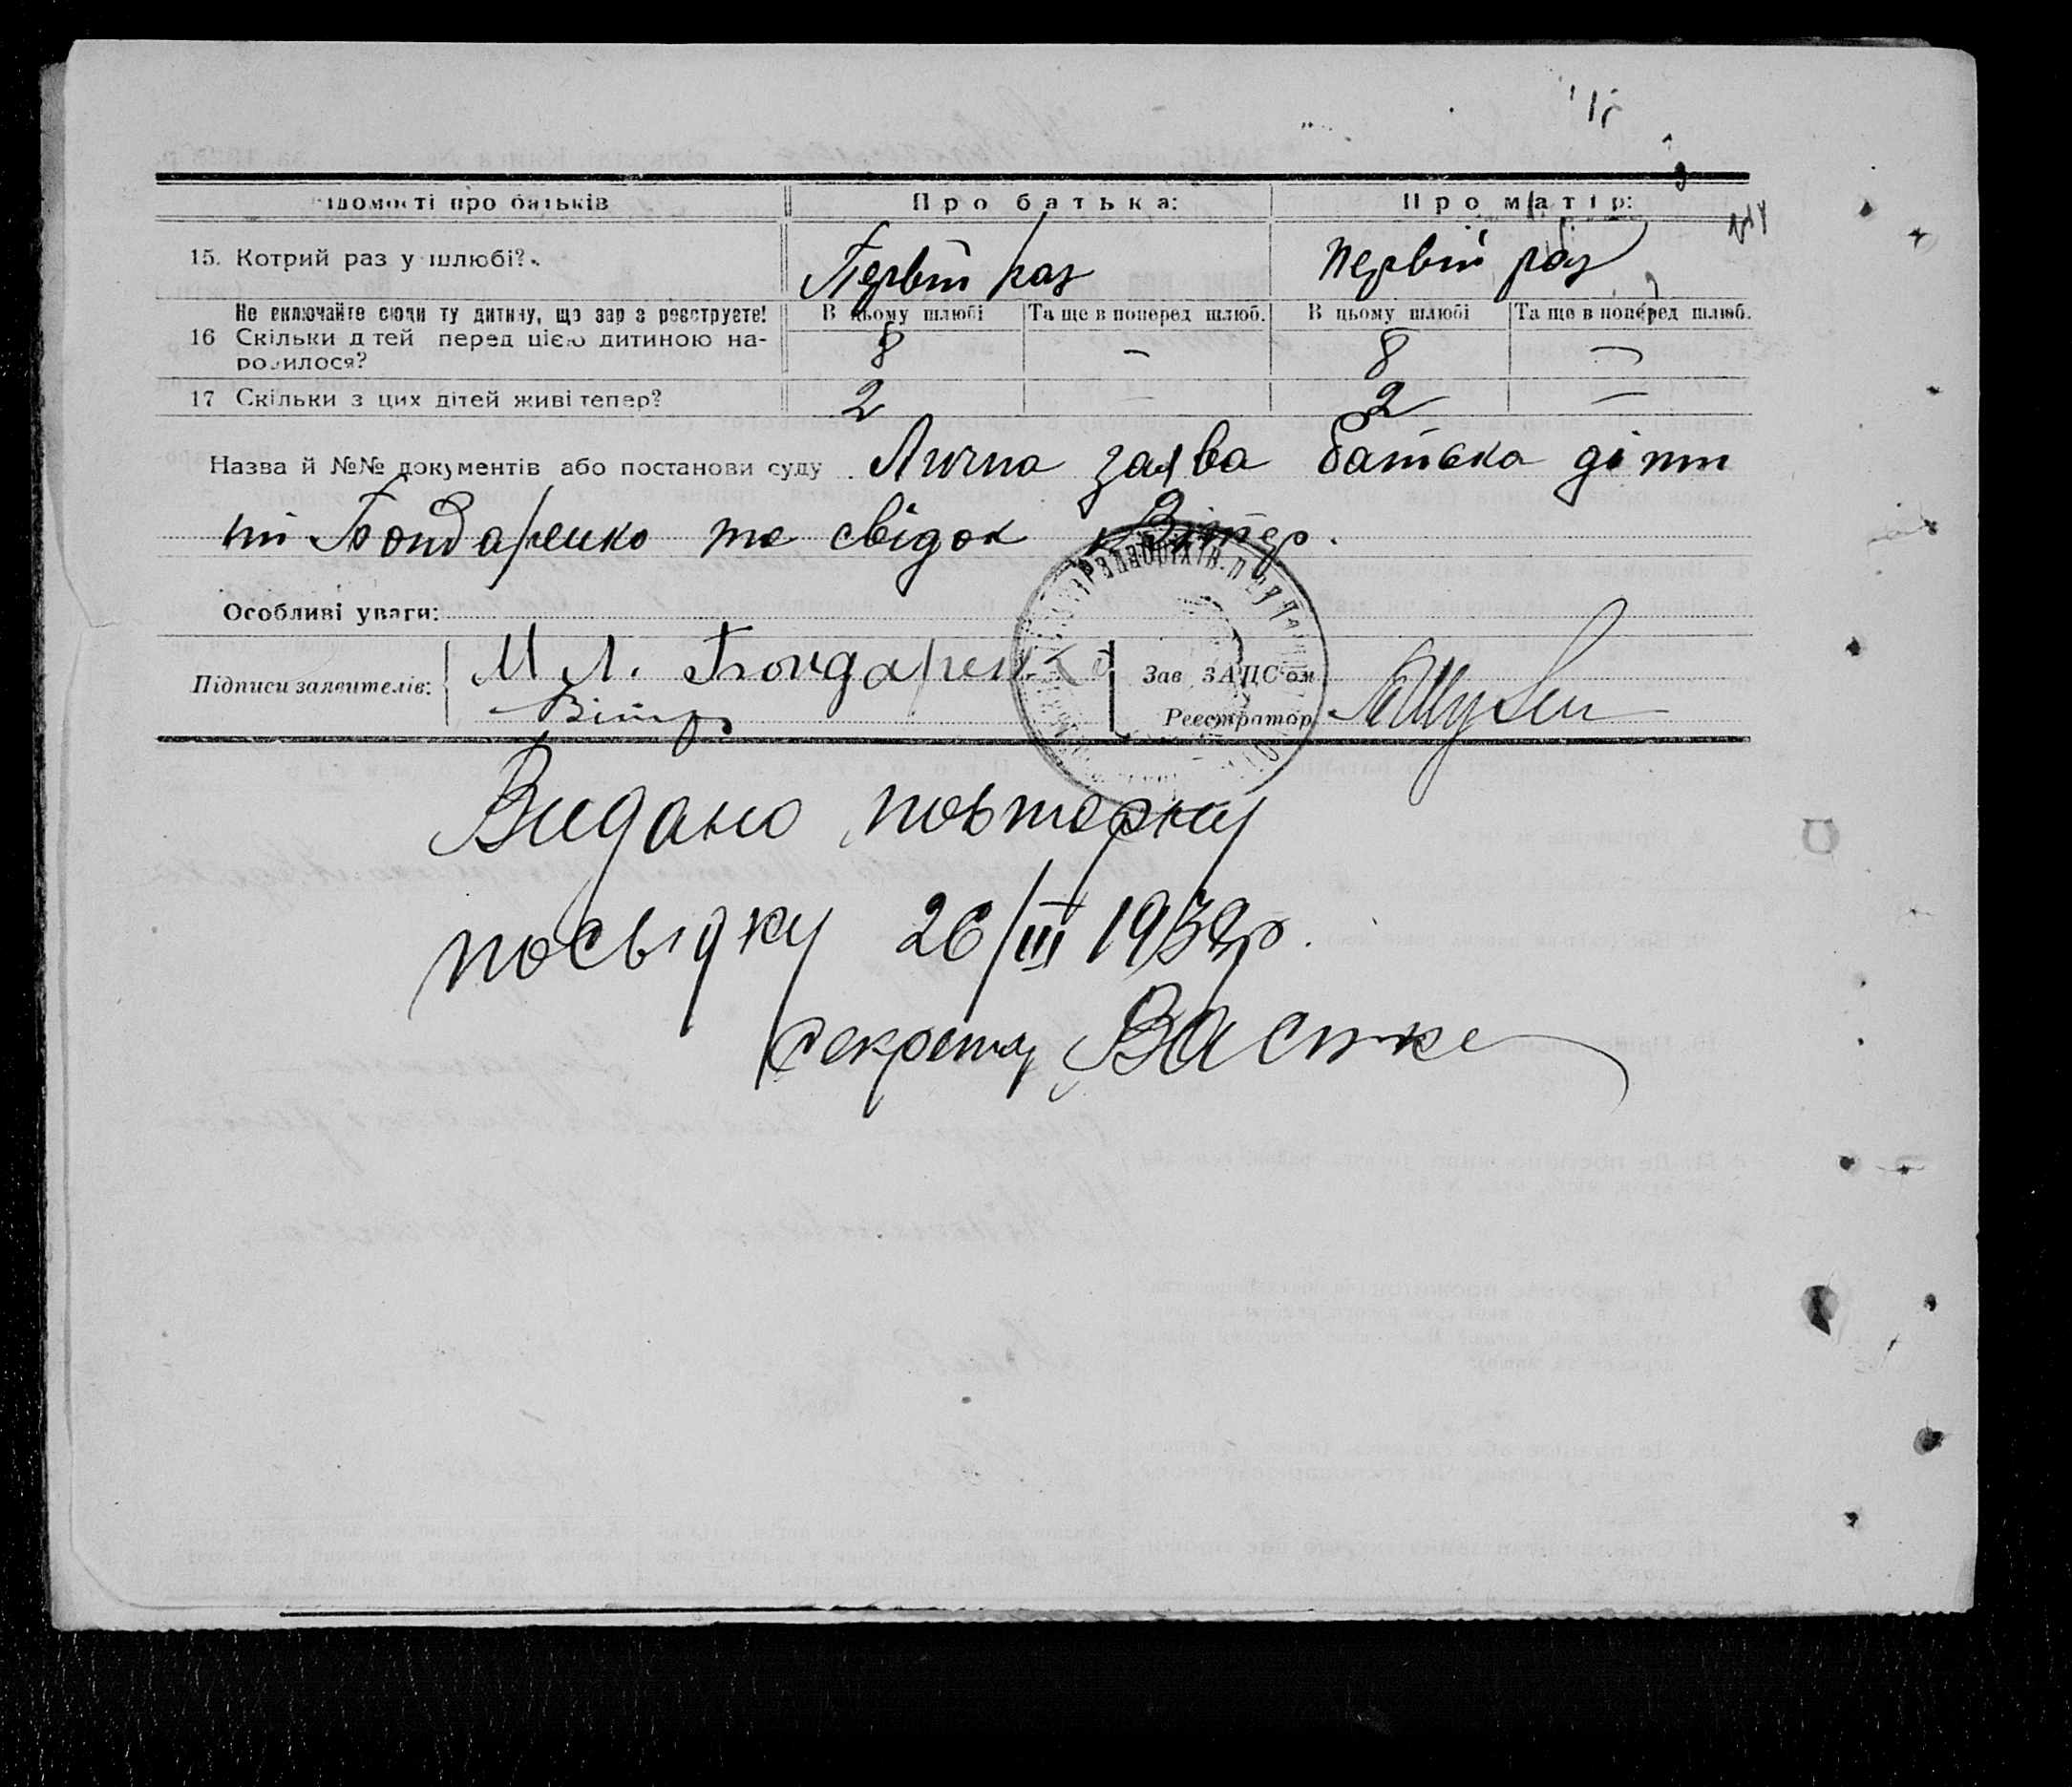 ідомості про батьків Про батька: Про матір:
15. Котрий раз у шлюбі? Первій раз Первій раз
Не включайте сюди ту дитину, що зараз реєструєте! В цьому шлюбі Та ще в поперед шлюб. В цьому шлюбі Та ще в поперед шлюб.
16 Скільки дітей перед цією дитиною на- 8 – 8 –
родилося?
17 Скільки з цих дітей живі тепер? 2 – 2 –
Назва й №№ документів або постанови суду Лична заява батька діти
ни Бондаренко та свідок Вітер.
Особливі уваги:
Підписи заявителів: М Л. Бондаренко Зав ЗАЦС'ом
Вітер Реєстратор
Видано повторну
посвідку 26/III 1939р.
секретар